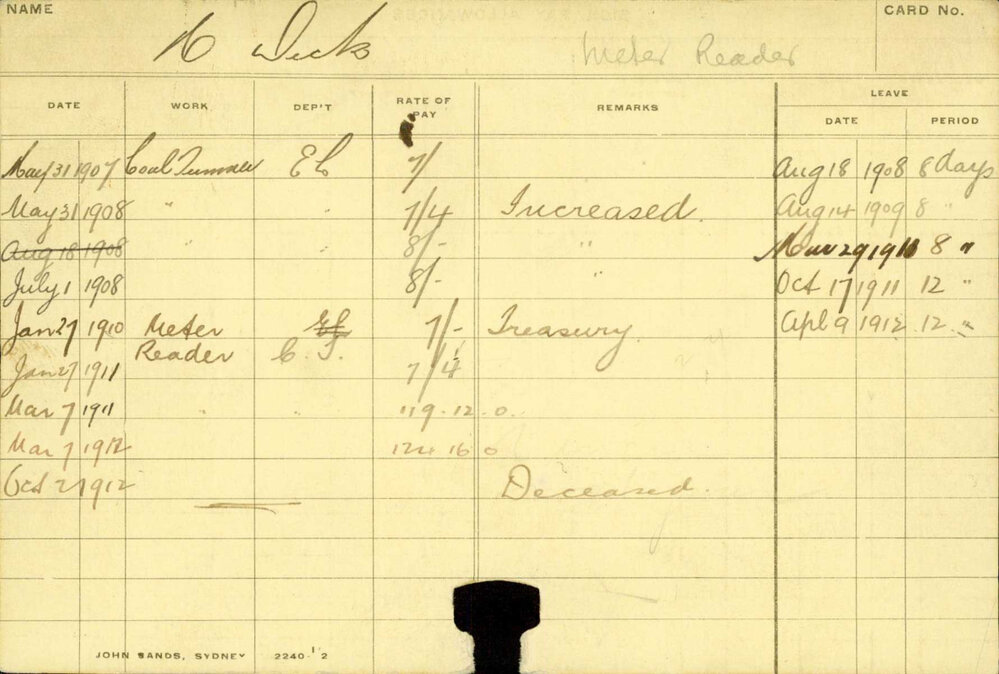 NAME
CARD No.
Dick
Meter Reader
DATE WORK DEP'T RATE OF PAY REMARKS LEAVE
DATE PERIOD
May 31 1907 Coal Trimmer 7/ Aug 18 1908 8 days
May 31 1908 " " 7/4 Increased. Aug 14 1909 8 "
Aug 18 1908 " " 8/- " Mar 29 1910 8 "
July 1 1908 8/- " Oct 17 1911 12 "
Jan 27 1910 Meter EL 7/- Treasury. Apl 9 1912 12 "
Reader C. T.
Jan 27 1911 7/4
Mar 7 1911 " " 119 . 12 . 0.
Mar 7 1912 124 16 0
Oct 2 1912 Deceased.
JOHN SANDS, SYDNEY 2240-1/2